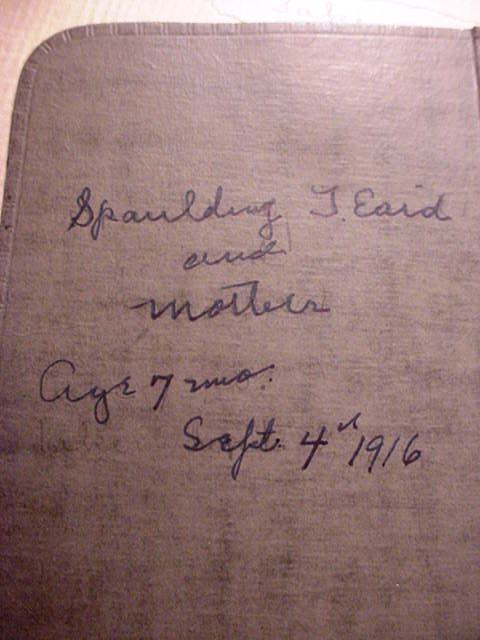 Spaulding T. Eaid
and
Mother
Age 7 mo.
Sept. 4th 1916